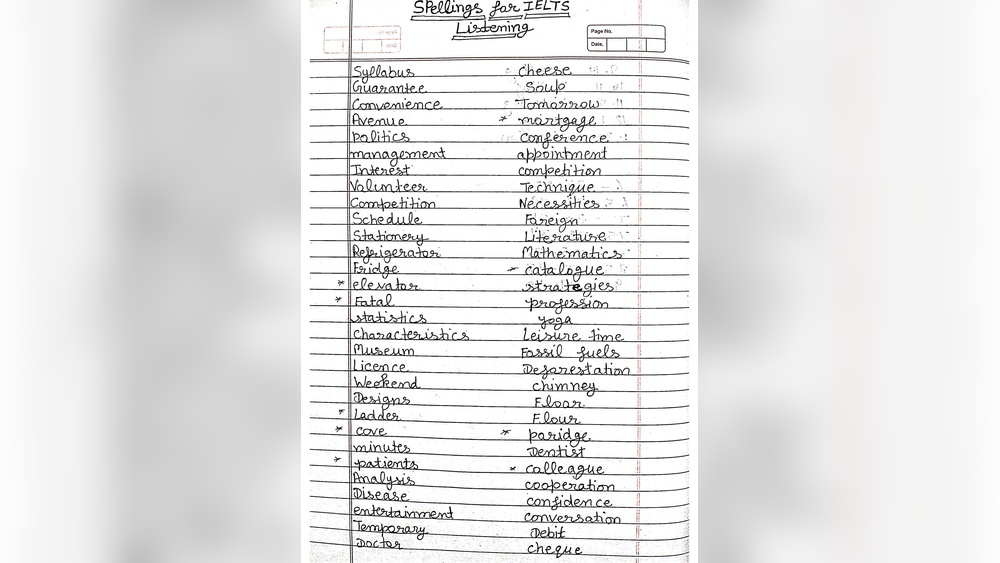 Spellings for IELTS
Listening
Page No.
Date.
Syllabus cheese
Guarantee Soup
Convenience Tomorrow
Avenue * mortgage
politics conference
management appointment
Interest competition
Volunteer Technique
Competition Necessities
Schedule Foreign
Stationery Literature
Refrigerator Mathematics
Fridge catalogue
* elevator strategies
* Fatal profession
statistics yoga
Characteristics Leisure time
Museum Fossil fuels
Licence Deforestation
Weekend chimney
Designs Floor
* Ladder Flour
* cove * poridge
minutes Dentist
* patients * colleague
Analysis cooperation
Disease confidence
entertainment conversation
Temporary Debit
Doctor cheque